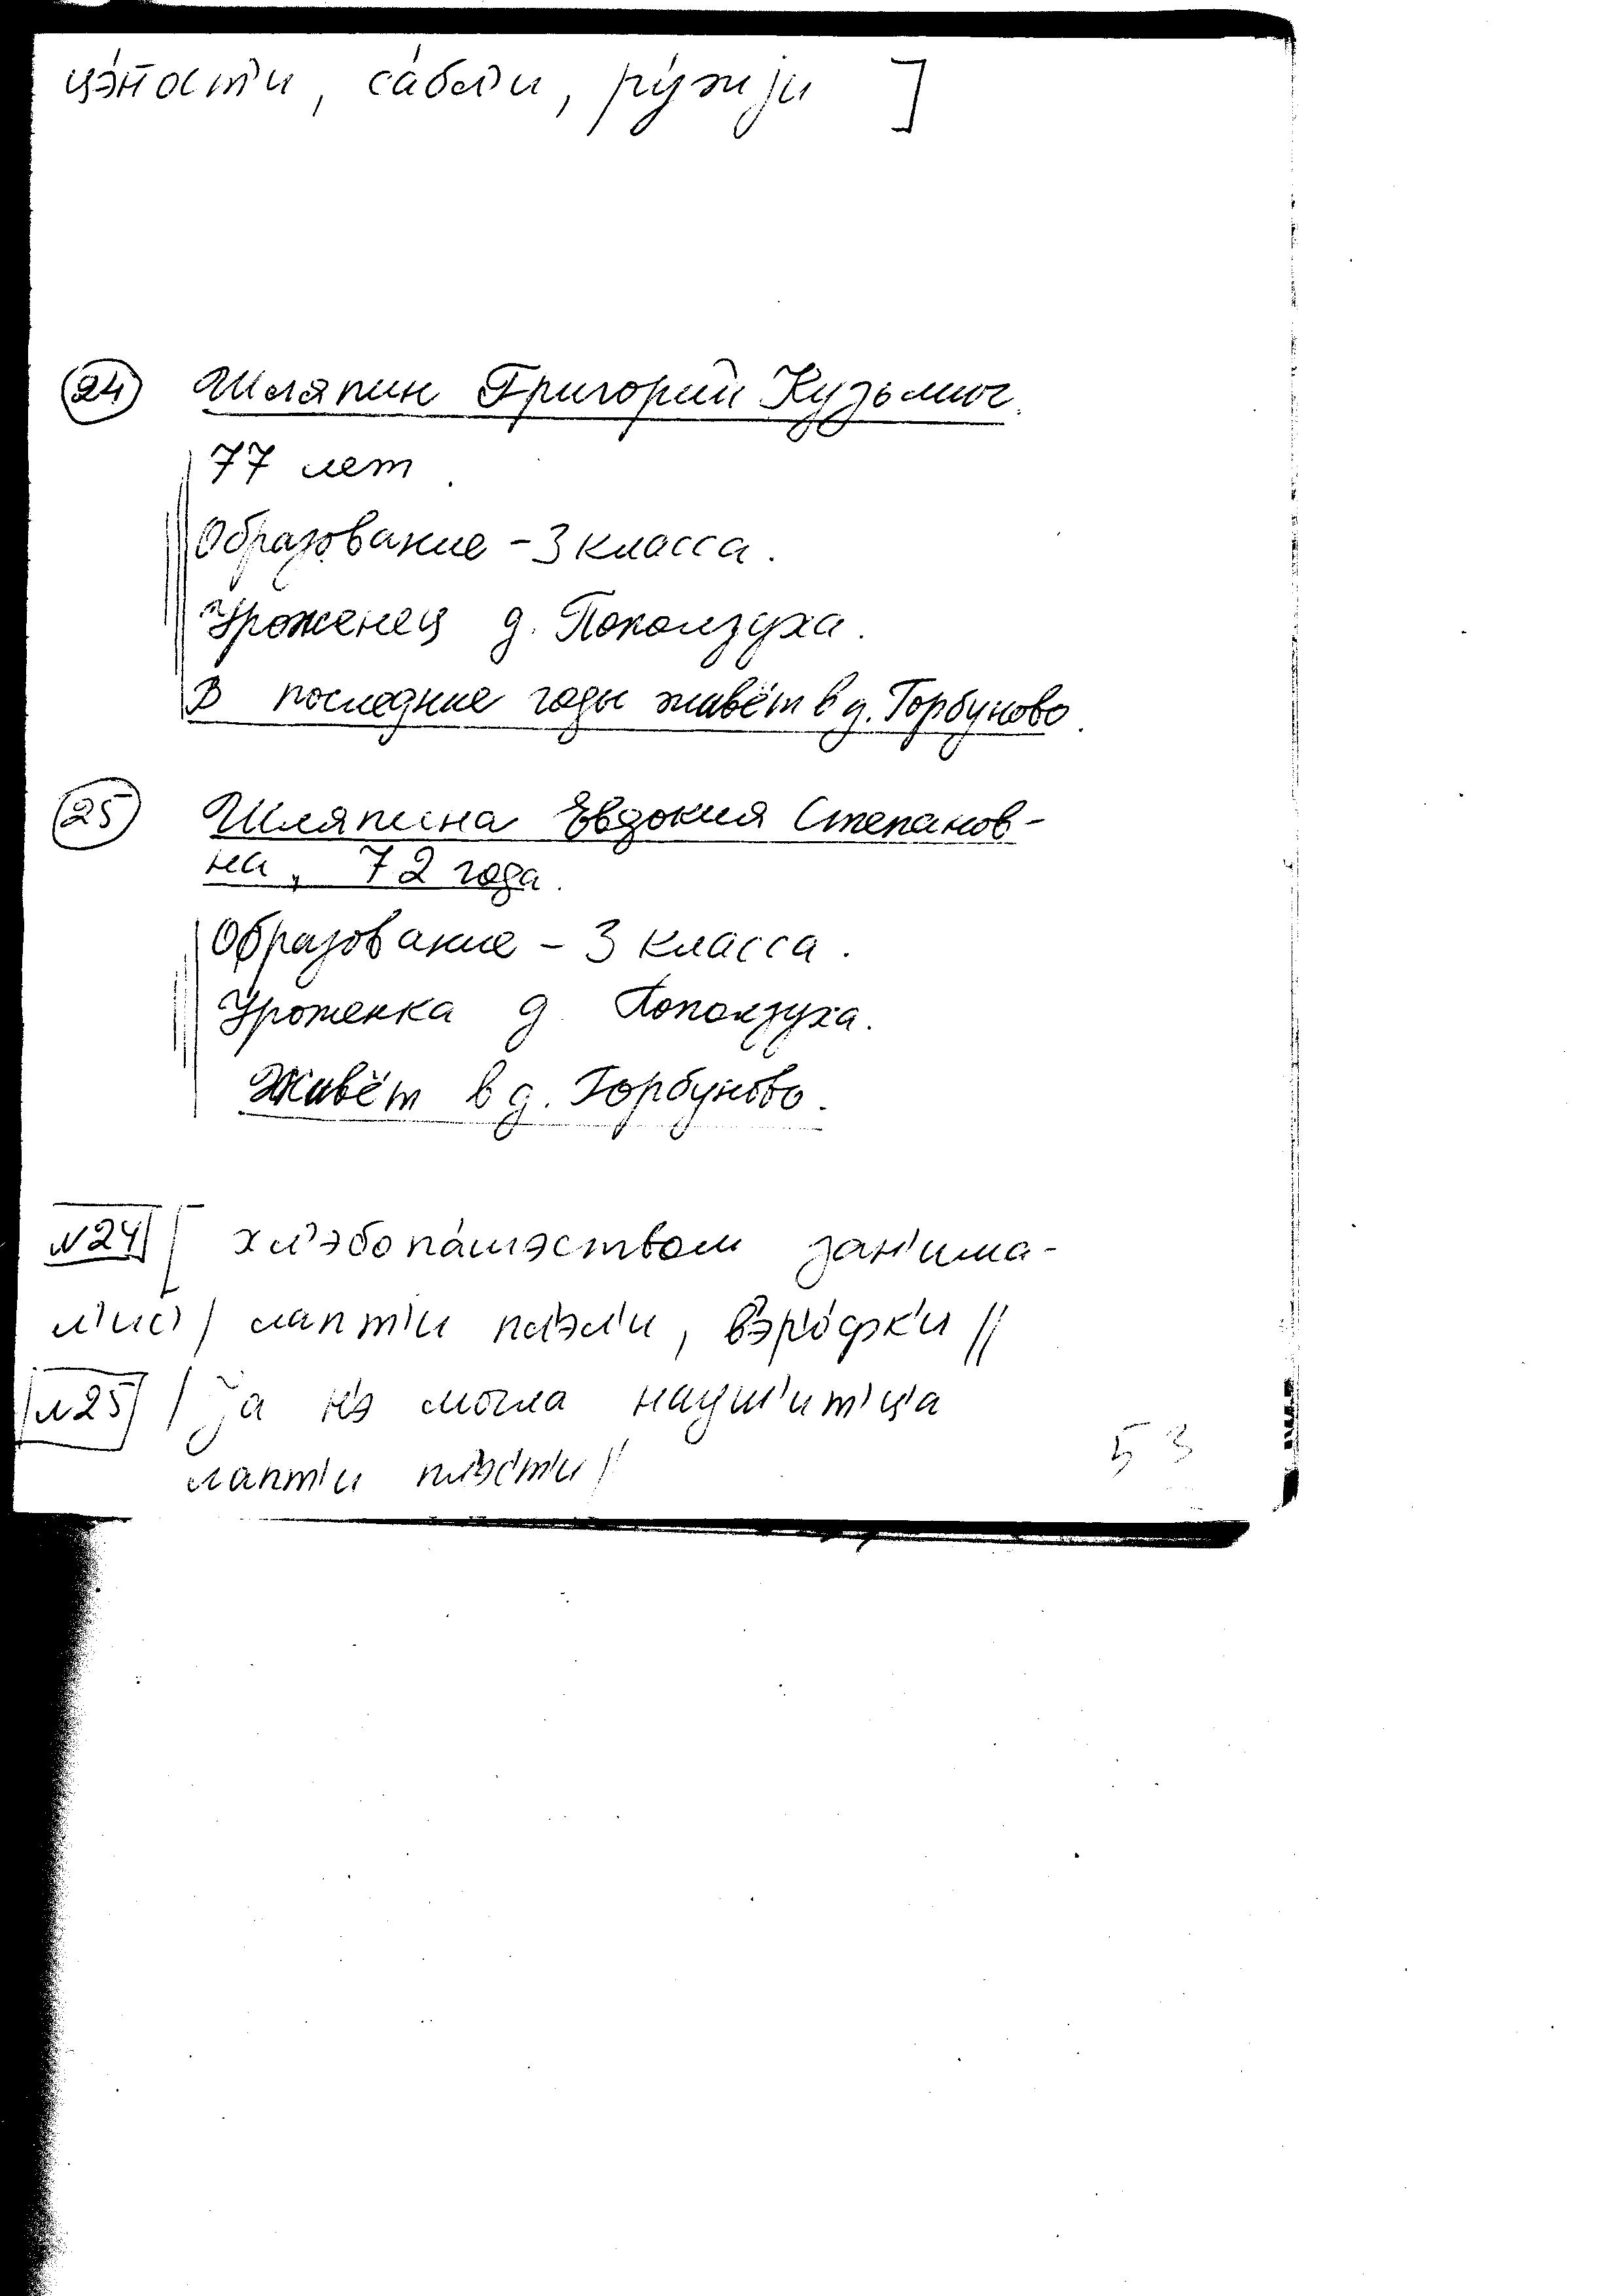 цэ́ност'и, са́бл'и, ру́жjи ]
24 Шляпин Григорий Кузьмич.
77 лет.
Образование – 3 класса.
Уроженец д. Поползуха.
В последние годы живёт в д. Горбуново.
25 Шляпина Евдокия Степанов-
на, 72 года.
Образование – 3 класса.
Уроженка д. Поползуха.
Живёт в д. Горбуново.
№24 [ хл'эбопа́шэством зан'има-
л'ис' / лапт'и пл'эл'и, в'эр'о́фк'и //
№25 / jа н'э могла науш'ит'ц'а
лапт'и пл'эс'т'и //
53